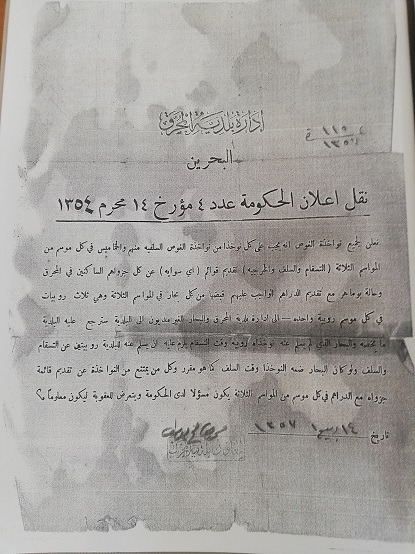 ادارة بلدية المحرق
البحرين
نقل اعلان الحكومة عدد ٤ مؤرخ ١٤ محرم ١٣٥٤
نعلن لجميع نواخذة الغوص انه يجب على كل نوخذا من نواخذة الغوص السلفيه منهم والخماميس في كل موسم من
المواسم الثلاثة ( التسقام والسلف والخرجيه ) تقديم قوائم ( اي سوايه ) عن كل جزواهم الساكنين في المحرق
وحالة بوماهر مع تقديم الدراهم الواجب عليهم قبضها من كل بحار في المواسم الثلاثة وهي ثلاث روبيات
في كل موسم روبية واحده — الى ادارة بلدية المحرق والبحار الغير مديون الى البلدية سترجع عليه البلدية
ما يخصه والبحار الذي لم يسلم عنه نوخذاه روبية وقت التسقام يلزم عليه ان يسلم عنه للبلدية روبيتين عن التسقام
والسلف ولو كان البحار ضمه النوخذا وقت السلف كما هو مقرر وكل من يمتنع من النواخذة عن تقديم قائمة
جزواه مع الدراهم في كل موسم من المواسم الثلاثة يكون مسؤلا لدى الحكومة ويتعرض للعقوبة ليكون معلوما
تاريخ ١٤ ١٣٥٧